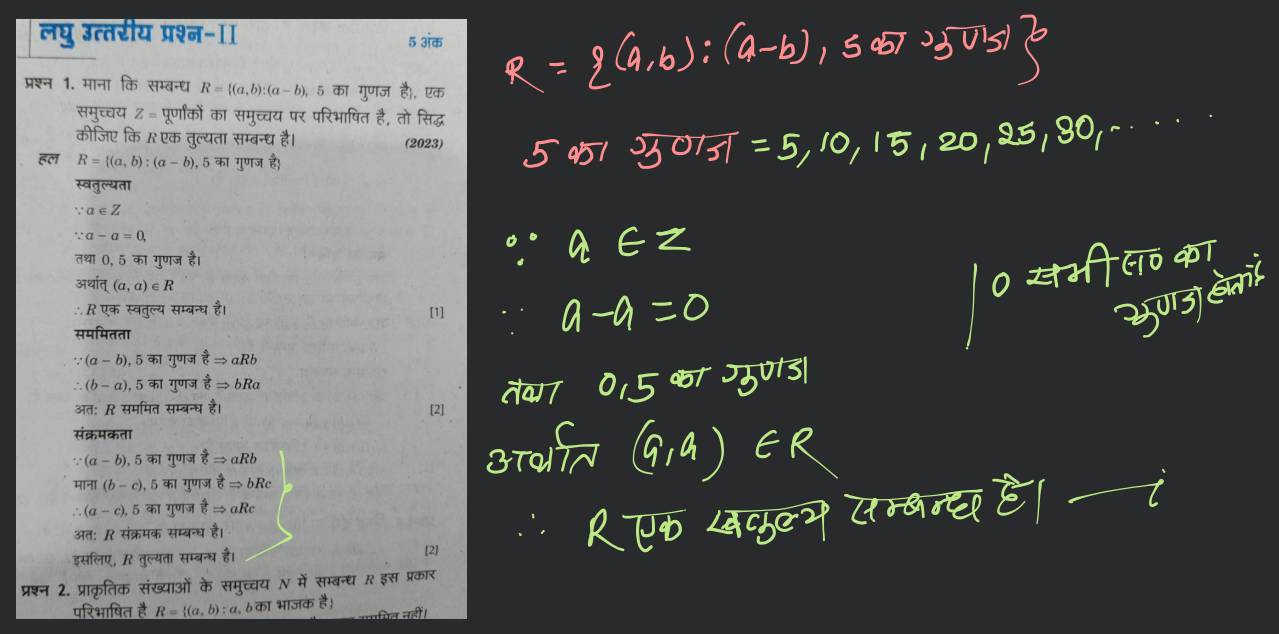 लघु उत्तरीय प्रश्न-II
5 अंक
प्रश्न 1. माना कि सम्बन्ध R = {(a,b):(a – b), 5 का गुणज है}, एक
समुच्चय Z = पूर्णांकों का समुच्चय पर परिभाषित है, तो सिद्ध
कीजिए कि R एक तुल्यता सम्बन्ध है। (2023)
हल R = {(a, b) : (a – b), 5 का गुणज है}
स्वतुल्यता
∵ a ∈ Z
∵ a – a = 0,
तथा 0, 5 का गुणज है।
अर्थात् (a, a) ∈ R
∴ R एक स्वतुल्य सम्बन्ध है। [1]
सममितता
∵ (a – b), 5 का गुणज है ⇒ aRb
∴ (b – a), 5 का गुणज है ⇒ bRa
अत: R सममित सम्बन्ध है। [2]
संक्रमकता
∵ (a – b), 5 का गुणज है ⇒ aRb
माना (b – c), 5 का गुणज है ⇒ bRc
∴ (a – c), 5 का गुणज है ⇒ aRc
अत: R संक्रमक सम्बन्ध है।
इसलिए, R तुल्यता सम्बन्ध है। [2]
प्रश्न 2. प्राकृतिक संख्याओं के समुच्चय N में सम्बन्ध R इस प्रकार
परिभाषित है R = {(a, b) : a, b का भाजक है}
नहीं।
R = {(a,b) : (a-b), 5 का गुणज}
5 का गुणज = 5, 10, 15, 20, 25, 30, ......
∵ a ∈ Z
∵ a-a = 0
0 सभी सं० का
गुणज होता है
तथा 0,5 का गुणज
अर्थात (a,a) ∈ R
∴ R एक स्वतुल्य सम्बन्ध है। — i